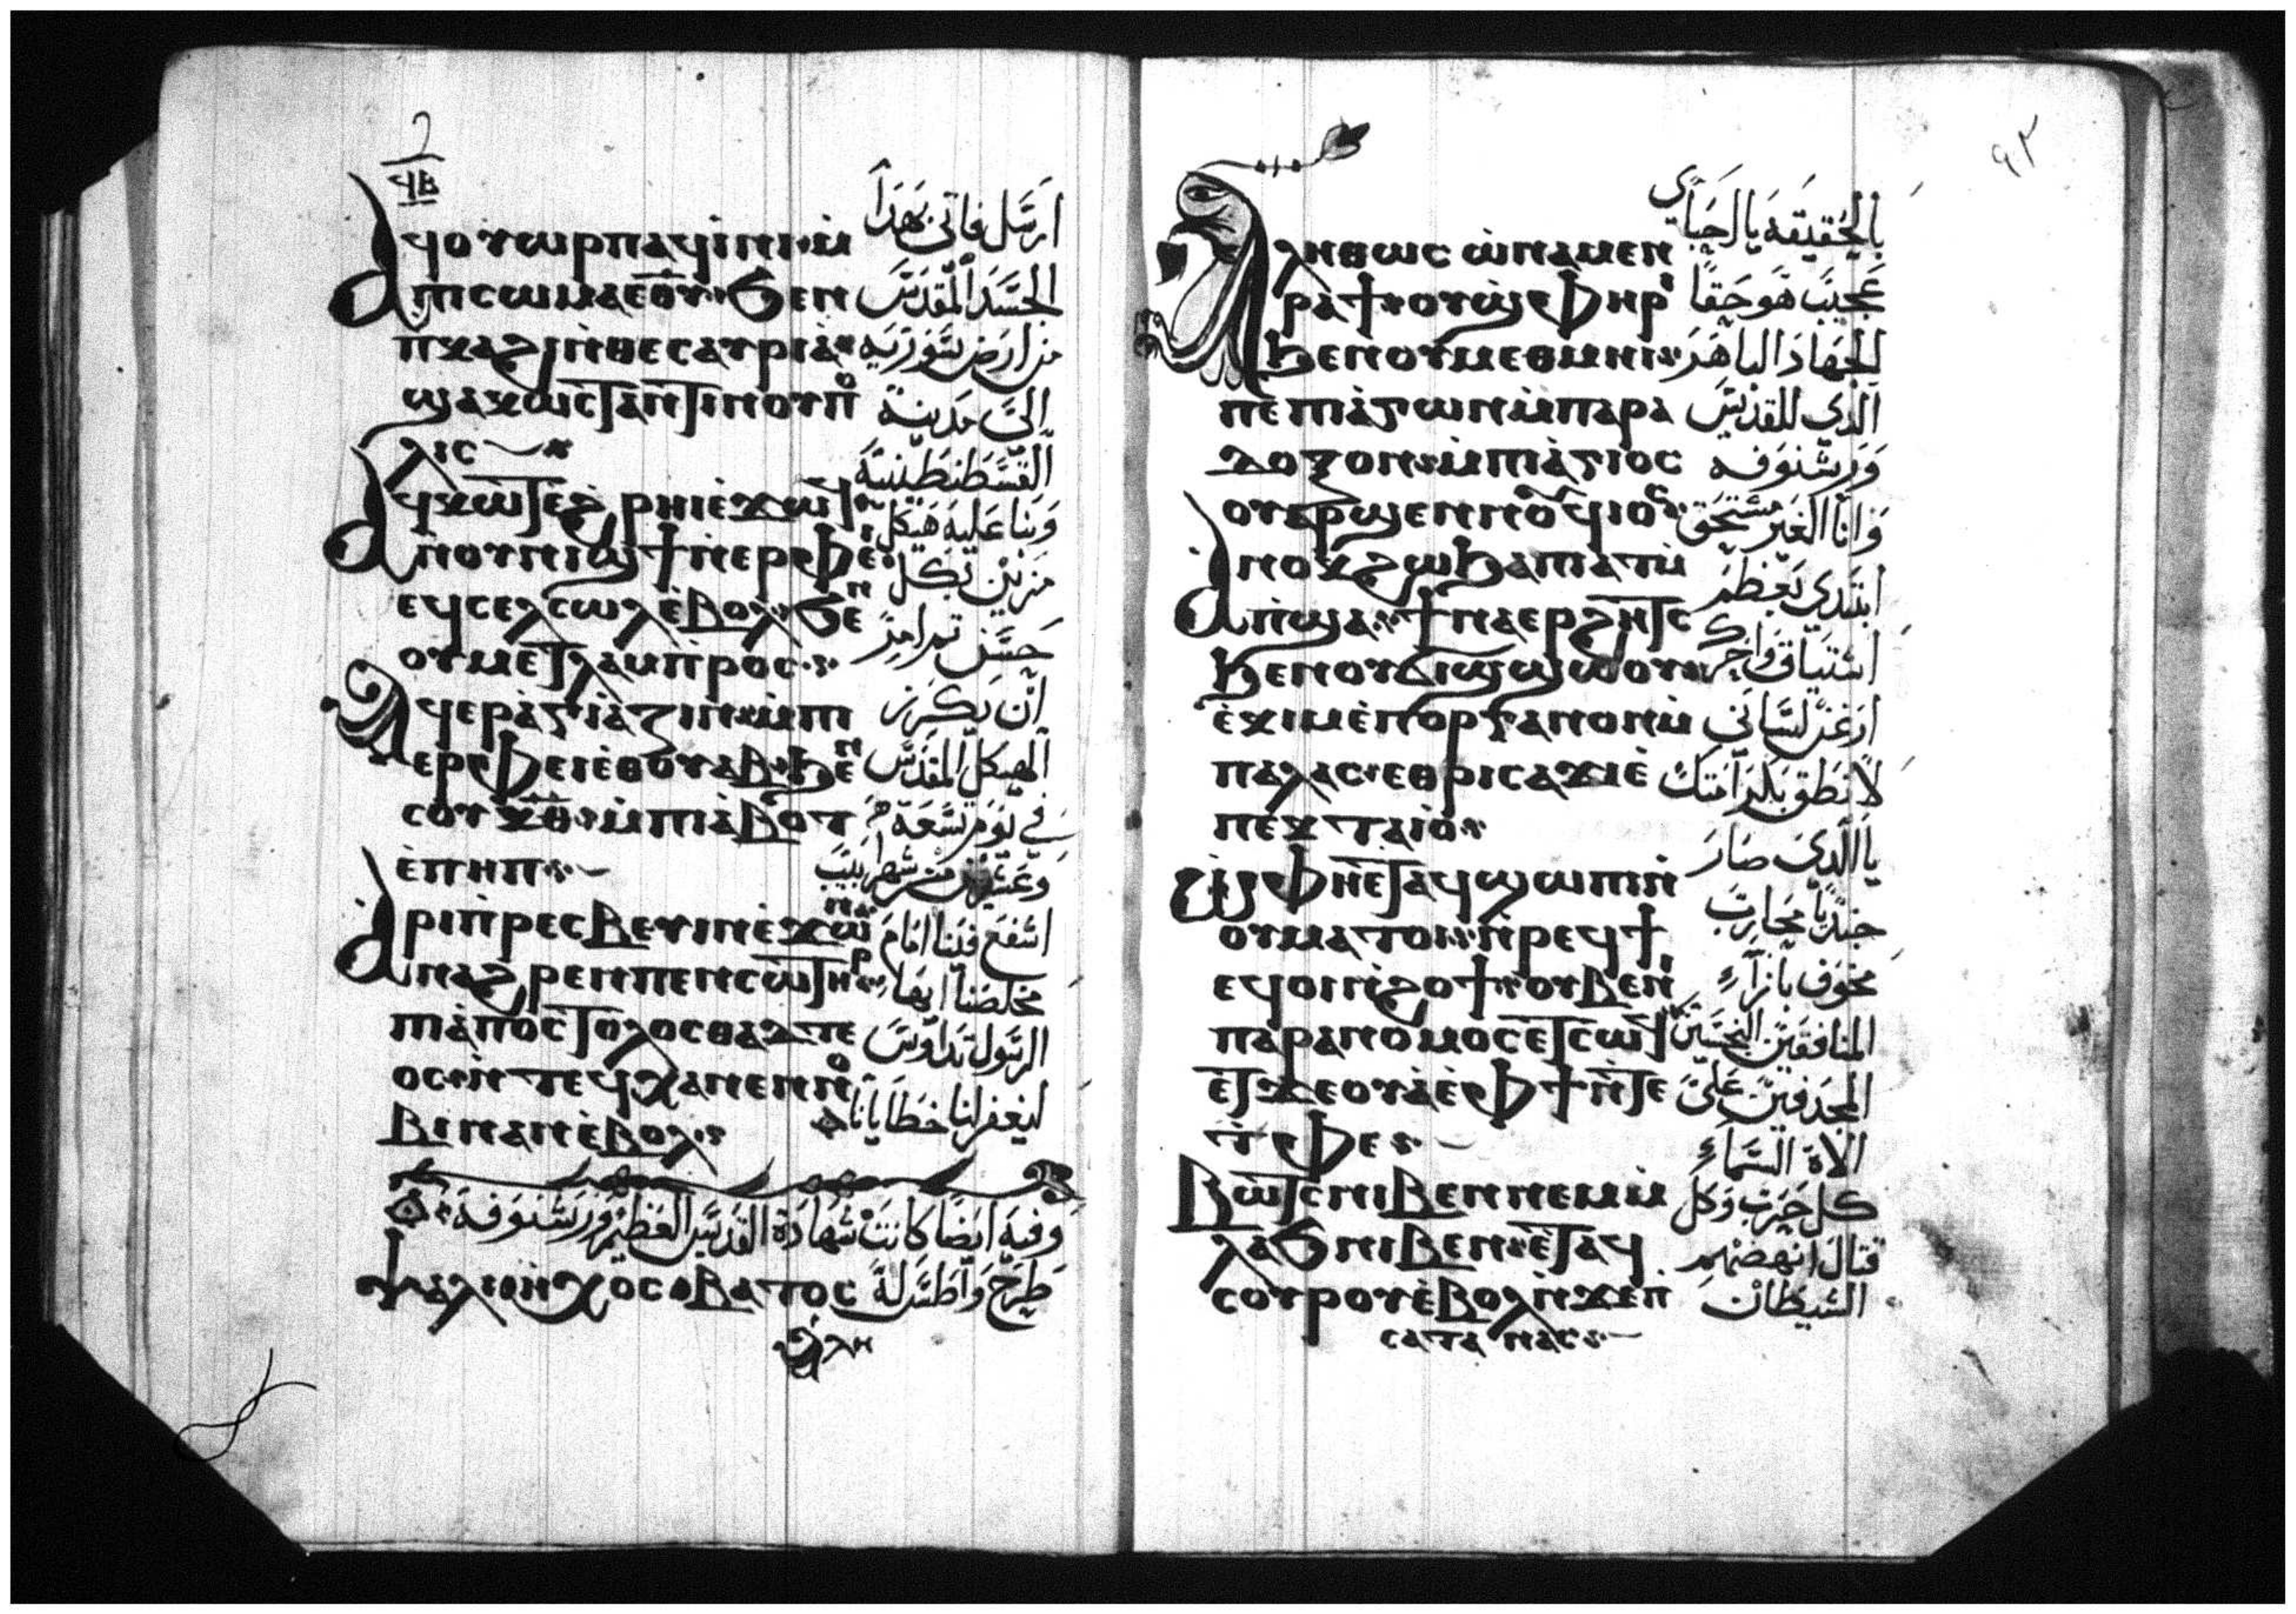 ϥⲃ
ⲁϥⲟⲩⲱⲣⲡ ⲁϥⲓⲛⲓ ⲙ̀
ⲡⲓⲥⲱⲙⲁ ⲉⲑⲩ ϧⲉⲛ
ⲡⲕⲁϩⲓ ⲛ̀ⲑⲉⲥⲁⲩⲣⲓⲁ
ϣⲁ ⲕⲱⲥⲧⲁⲛⲧⲓⲛⲟⲩⲡⲟ
ⲗⲓⲥ
ⲁϥⲕⲱⲧ ⲉ̀ϩⲣⲏⲓ ⲉ̀ϫⲱϥ
ⲛ̀ⲟⲩⲛⲓϣϯ ⲛ̀ⲉⲣⲫⲉⲓ
ⲉϥⲥⲉⲗⲥⲱⲗ ⲉ̀ⲃⲟⲗ ϧⲉⲛ
ⲟⲩⲙⲉⲧⲗⲁⲙⲡⲣⲟⲥ
ⲁϥⲉⲣⲁ̀ⲅⲓⲁⲍⲓⲛ ⲙ̀ⲡⲓ
ⲉⲣⲫⲉⲓ ⲉ̀ⲑⲟⲩⲁⲃ ϧⲉⲛ
ⲥⲟⲩ ⲕⲑ ⲙ̀ⲡⲓⲁ̀ⲃⲟⲧ
ⲉ̀ⲡⲏⲡ
ⲁⲣⲓⲡ̀ⲣⲉⲥⲃⲉⲩⲓⲛ ⲉ̀ϫⲱⲛ
ⲛⲁϩⲣⲉⲛ ⲡⲉⲛⲥⲱⲧⲏⲣ
ⲡⲓⲁ̀ⲡⲟⲥⲧⲟⲗⲟⲥ ⲑⲁⲇⲇⲉ
ⲟⲥ ⲛ̀ⲧⲉϥⲭⲁ ⲛⲉⲛⲛⲟ
ⲃⲓ ⲛⲁⲛ ⲉ̀ⲃⲟⲗ
ارسل فاتى بهذا
الجسد المقدس
من ارض سورية
الى مدينة
القسطنطينية
وبنا عليه هيكل
مزين بكل
حسن
ان يكرز
الهيكل المقدس
في يوم تسعة
وعشرين من شهر ابيب
اشفع فينا امام
مخلصنا ايها
الرسول تداوس
ليغفر لنا خطايانا
وفيه ايضا كانت شهادة القديس العظيم ورشنوفه
ⲯⲁⲗⲓ ⲟⲛ ⲭⲟⲥ ⲃⲁⲧⲟⲥ طرح واطس له
ⲁⲗⲏ
٩٢
ⲁⲗⲏⲑⲱⲥ ⲱ̀ ⲛⲁⲙⲉⲛ
ⲣⲁϯ ⲟⲩϣⲫⲏⲣⲓ
ϧⲉⲛ ⲟⲩⲙⲉⲑⲙⲏⲓ
ⲡⲉ ⲡⲓⲁ̀ⲅⲱⲛ ⲙ̀ⲡⲁⲣⲁ
ⲇⲟⲝⲟⲛ ⲙ̀ⲡⲓⲁ̀ⲅⲓⲟⲥ
ⲟⲩⲁⲣϣⲉⲛⲛⲟϥⲓⲟⲥ
ⲁⲛⲟⲕ ϩⲱ ϧⲁ ⲡⲓⲁⲧⲙ̀
ⲡ̀ϣⲁ ϯⲛⲁⲉⲣϩⲏⲧⲥ
ϧⲉⲛ ⲟⲩϭⲓϣϣⲱⲟⲩ
ⲉ̀ⲕⲓⲙ ⲉ̀ⲡⲟⲣⲅⲁⲛⲟⲛ ⲙ̀
ⲡⲁⲗⲁⲥ ⲉⲑⲣⲓⲥⲁϫⲓ ⲉ̀
ⲡⲉⲕⲧⲁⲓⲟ̀
ⲫⲏⲉⲧⲁϥϣⲱⲡⲓ ⲛ̀
ⲟⲩⲙⲁⲧⲟⲓ ⲛ̀ⲣⲉϥϯ
ⲉϥⲟⲓ ⲛ̀ϩⲟϯ ⲟⲩⲃⲉ ⲛⲓ
ⲡⲁⲣⲁⲛⲟⲙⲟⲥ ⲉⲧⲥⲱϥ
ⲉⲧϫⲉⲟⲩⲁ̀ ⲉ̀ⲫϯ ⲛ̀ⲧⲉ
ⲧ̀ⲫⲉ
ⲃⲱⲧⲥ ⲛⲓⲃⲉⲛ ⲛⲉⲙ ⲙ̀
ⲗⲁϧ ⲛⲓⲃⲉⲛ ⲉ̀ⲧⲁϥ
ⲥⲟⲩⲣⲟⲩ ⲉ̀ⲃⲟⲗ ⲛ̀ϫⲉ ⲡ
ⲥⲁⲧⲁⲛⲁⲥ
بالحقيقه يا احباي
عجيب هو حقا
الجهاد الباهر
الذي للقديس
ورشنوفه
وانا الغير مستحق
ابتدي بعظم
اشتياق واحرك
ارغن لساني
لانطق بكرامتك
يا الذي صار
جنديا محارب
مخوف بازآء
المنافقين النجسين
المجدفين على
الاه السماء
كل حرب وكل
قتال انهضهم
الشيطان